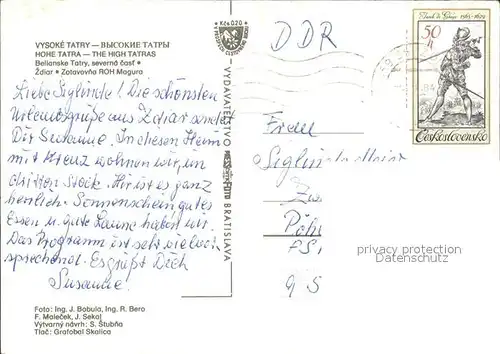 VYSOKÉ TATRY — ВЫСОКИЕ ТАТРЫ
HOHE TATRA — THE HIGH TATRAS
Belianske Tatry, severná časť •
Ždiar • Zotavovňa ROH Magura
Liebe Siglinde! Die schönsten
Urlaubsgrüße aus Zdiar sendet
Dir Susanne. In diesem Heim
mit Kreuz wohnen wir, im
dritten Stock. Hier ist es ganz
herrlich. Sonnenschein gutes
Essen u. gute Laune haben wir.
Das Programm ist sehr vielver
sprechend. Es grüßt Dich
Susanne.
Foto: Ing. J. Babula, Ing. R. Bero
F. Maleček, J. Sekal
Výtvarný návrh: S. Štubňa
Tlač: Grafobal Skalica
Kčs 0,20
VYDAVATEĽSTVO
BRATISLAVA
DDR
50 h
1565-1629
Československo
84
Frau
Siglinde
privacy protection